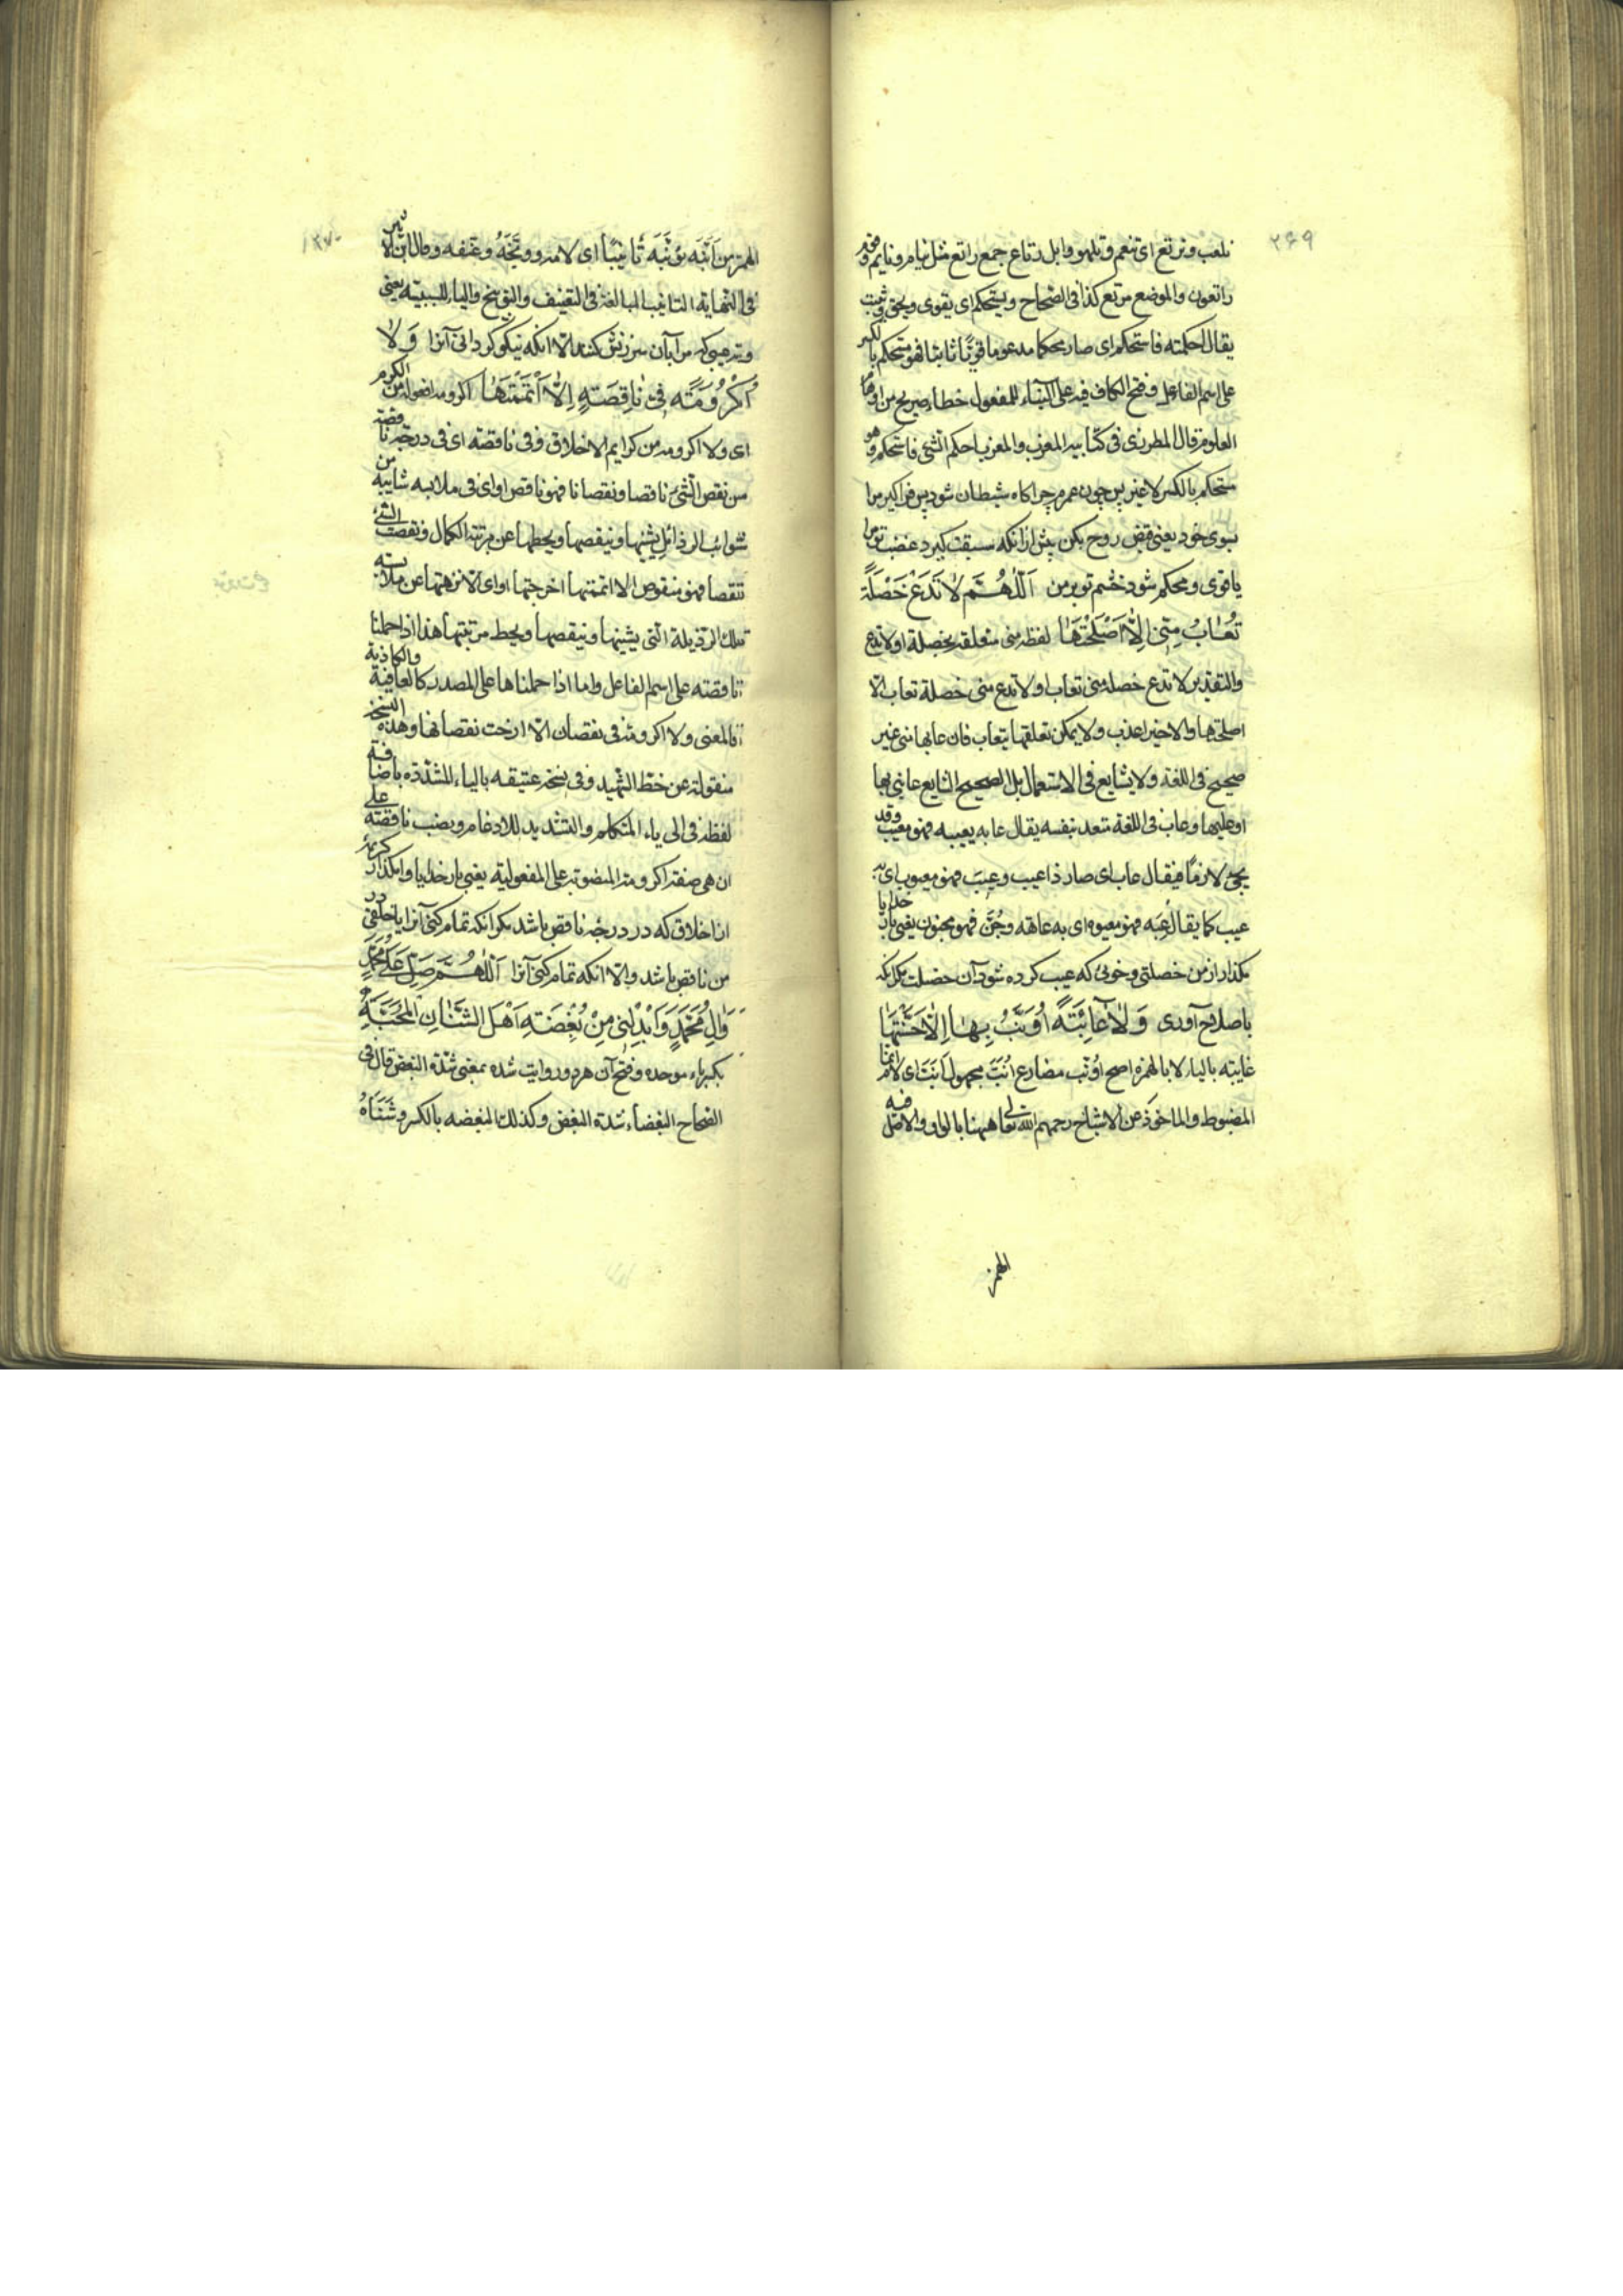 ۲۶۹
نلعب و نرتع ای ننعم و نلهو و ابل رتاع جمع راتع مثل نیام و نایم و قوم
راتعون و الموضع مرتع کذا فی الصحاح و یستحکم ای یقوی و یحق و یثبت
یقال احکمته فاستحکم ای صار محکما مدعوما قویّا ثابتا فهو مستحکم بالکسر
علی اسم الفاعل و فتح الکاف فیه علی البناء للمفعول خطاء صریح من اوهام
العلوم قال المطرزی فی کتابیه المعرب و المغرب احکم الشئ فاستحکم و هو
مستحکم بالکسر لا غیر پس چون عمرم چراکاه شیطان شود پس فراکیر مرا
بسوی خود یعنی قبض روح بکن پیش از انکه سبقت کیرد غضب تو مرا
یا قوی و محکم شود خشم تو بر من اَللّٰهُمَّ لَا تَدَعْ خَصْلَةً
تُعَابُ مِنِّی اِلَّا اَصْلَحْتَهَا لفظه منی متعلقه بخصلة او لا تدع
و التقدیر لا تدع خصلة منی تعاب او لا تدع منی خصلة تعاب الا
اصلحتها و الاخیر اعذب و لا یمکن تعلقها بتعاب فان عابها منی غیر
صحیح فی اللغة و لا شایع فی الاستعمال بل الصحیح الشایع عابنی بها
او علیها و عاب فی اللغة متعد بنفسه یقال عابه یعیبه فهو معیب و قد
یجئ لازما فیقال عاب ای صار ذا عیب و عیب فهو معیوب ای به
عیب کما یقال عِیهَ فهو معیوه ای به عاهة و جُنَّ فهو مجنون یعنی بار خدایا
مکذار از من خصلتی و خوئی که عیب کرده شود آن خصلت مکر انکه
باصلاح آوری وَ لَا عَائِبَةً اُوَنَّبُ بِهَا اِلَّا حَسَّنْتَهَا
عایبه بالیاء لا بالهمزه اصح اونب مضارع اُنِّبَ مجهول اَنَّبَ ای لام انما
المضبوط و الماخوذ عن الاشیاخ رحمهم الله تعالی هیهنا بالواو و الاصل فیه
الهمز
۲۷۰
الهمز من اَنَّبَه یؤنّبَه تَأنیبًا ای لامه و وبَّخَهُ و عَنّفه و قال ابن الاثیر
فی النهایة التانیب المبالغة فی التعنیف و التوبیخ و الیاء للسببیه یعنی
و نه عیبی که مرا بآن سرزنش کنند الا انکه نیکو کردانی آنرا وَ لَا
اُکْرُومَةً فِیَّ نَاقِصَةً اِلَّا اَتْمَمْتَهَا اکرومه افعوله من الکرم
ای و لا اکرومة من کرایم الاخلاق و فی ناقصة ای فی درجة ناقصة
من نقص الشئ ناقصا و نقصانا فهو ناقص او ای فی ملابسة شایبة من
شوائب الرذائل یشینها و ینقصها و یحطها عن مرتبة الکمال و نقصت الشئ
نقصا فهو منقوص الا اتممتها اخرجتها او ای الا نزهتها عن ملابسة
تلک الرذیلة التی یشینها و ینقصها و یحط مرتبتها هذا اذا حملنا
ناقصة علی اسم الفاعل و اما اذا حملناها علی المصدر کالعافیة و الکاذبة
فالمعنی و لا اکرومة فی نقصان الا ازحت نقصانها و هذه النسخة
منقولة عن خط الشهید و فی نسخه عتیقه بالیاء المشدده باضافة
لفظة فی الی یاء المتکلم و التشدید للادغام و نصب ناقصة علی
ان هی صفة اکرومة المنصوبة علی المفعولیة یعنی بار خدایا وامکذار کریمۀ
از اخلاق که در درجۀ ناقص باشد مکر انکه تمام کنی آنرا یا خلقی در
من ناقص باشد و الا انکه تمام کنی آنرا اَللّٰهُمَّ صَلِّ عَلَی مُحَمَّدٍ
وَ آلِ مُحَمَّدٍ وَ اَبْدِلْنِی مِنْ بُغْضَةِ اَهْلِ الشَّنَآنِ الْمَحَبَّةَ
بکسر باء موحده و فتح آن هر دو روایت شده بمعنی شدّة البغض قال فی
الصحاح البغضاء شدة البغض و کذلک البغضه بالکسر و شَنَئَاهُ